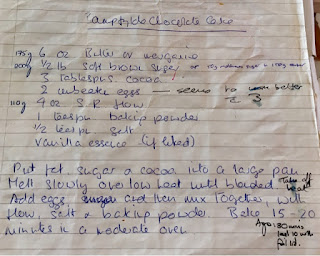 Chocolate Cake
175g 6 oz Butter or margarine
200g 1/2 lb Soft brown sugar or
3 Tablespns. cocoa
2 unbeaten eggs — seems to better
c̄ 3
110g 4 oz S.R flour
1 teaspn. baking powder
1/2 teaspn. salt
Vanilla essence (if liked)
Put fat, sugar & cocoa into a large pan
Melt slowly over low heat until blended Take off heat
Add eggs, and then mix together, with
flour, salt & baking powder. Bake 15-20
minutes in a moderate oven
Aga: 30 mins
last 10 with
foil lid.